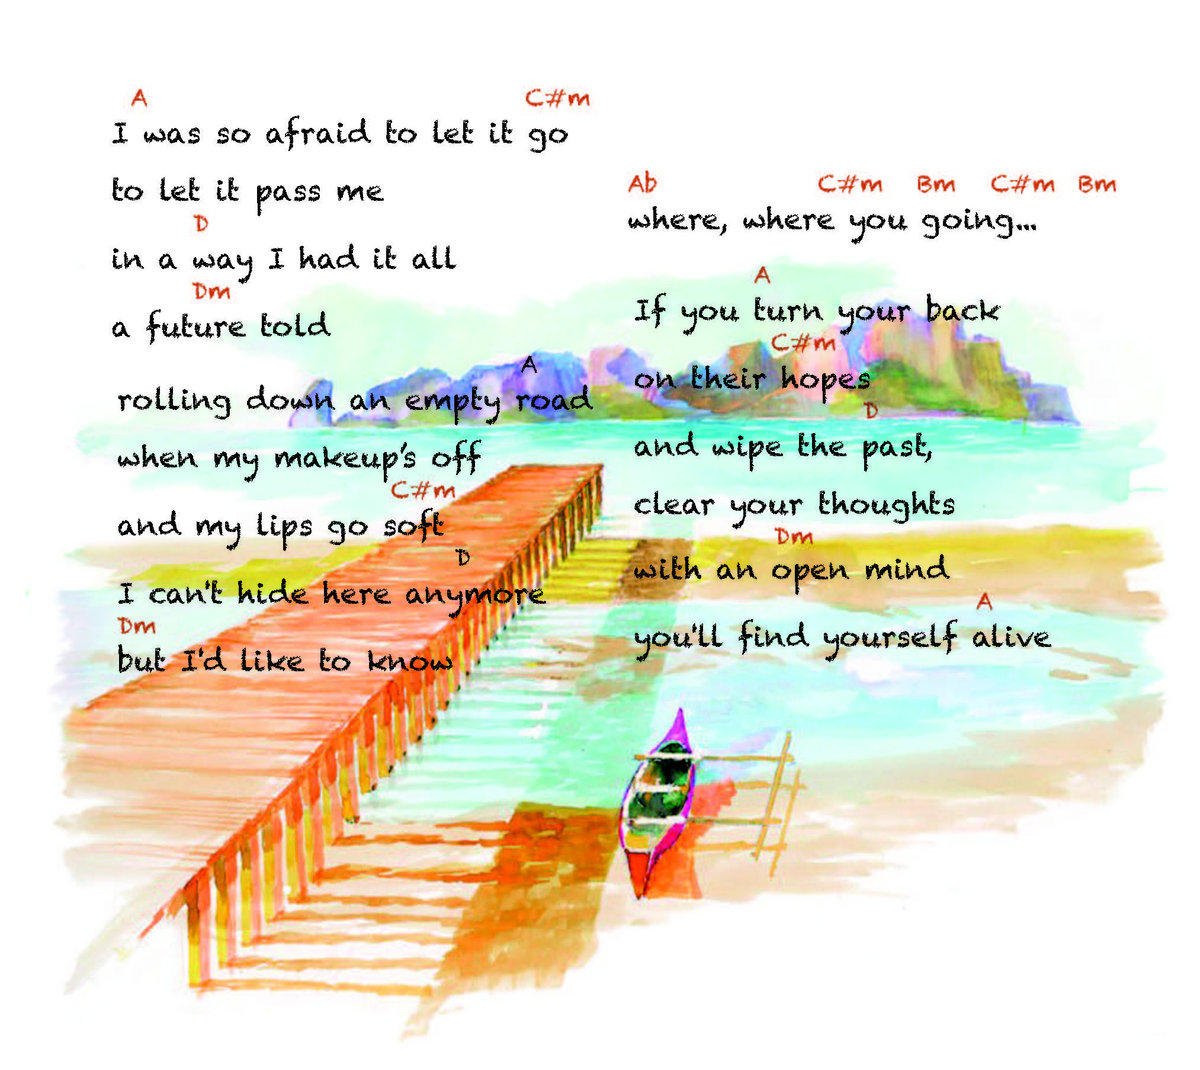 A C#m
I was so afraid to let it go
to let it pass me
D
in a way I had it all
Dm
a future told
A
rolling down an empty road
when my makeup's off
C#m
and my lips go soft
D
I can't hide here anymore
Dm
but I'd like to know
Ab C#m Bm C#m Bm
where, where you going...
A
If you turn your back
C#m
on their hopes
D
and wipe the past,
clear your thoughts
Dm
with an open mind
A
you'll find yourself alive